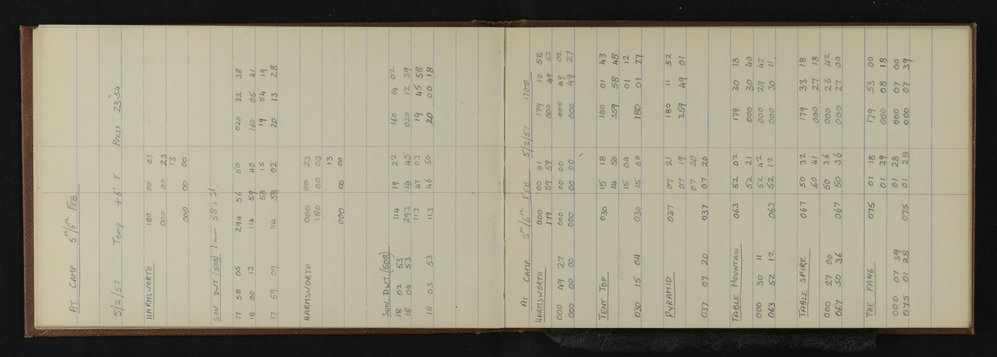 AT CAMP 5th/6th FEB
5/2/57 Temp +6° F. Press 23.54"
HARMSWORTH 180 00 03
000 00 23
13
000 00 00
SUN DWT (508) 1 min 58
17 58 05 294 56 50 020 32 38
18 00 13 114 59 40 160 05 41
58 15 19 54 19
17 59 09 114 58 02 20 13 28
HARMSWORTH
000 00 23
180 00 03
13
000 00 00
SUN DWT (508)
18 02 53 114 19 22 160 14 02
18 04 53 293 14 45 020 12 39
113 47 03 19 45 58
18 03 53 113 46 50 20 00 18
AT CAMP 5th/6th FEB 5/2/57 1700
HARMSWORTH 000 00 01 179 10 58
179 59 59 000 49 52
000 49 27 000 00 00 000 49 02
000 00 00 000 00 00 000 49 27
TENT TOP 030 15 18 180 01 43
14 50 359 58 48
15 04 01 12
030 15 04 030 15 04 180 01 27
PYRAMID 037 07 21 180 11 52
07 19 359 49 01
07 20
037 07 20 037 07 20
TABLE MOUNTAIN 063 52 02 179 30 18
52 21 000 30 40
000 30 11 52 42 000 29 42
063 52 12 063 52 12 000 30 11
TABLE SPIRE 067 50 32 179 33 18
50 41 000 27 18
000 27 00 50 36 000 26 42
067 50 36 067 50 36 000 27 00
THE FANG 075 01 18 179 53 00
01 39 000 08 18
000 07 39 01 28 000 07 00
075 01 28 075 01 28 000 07 39